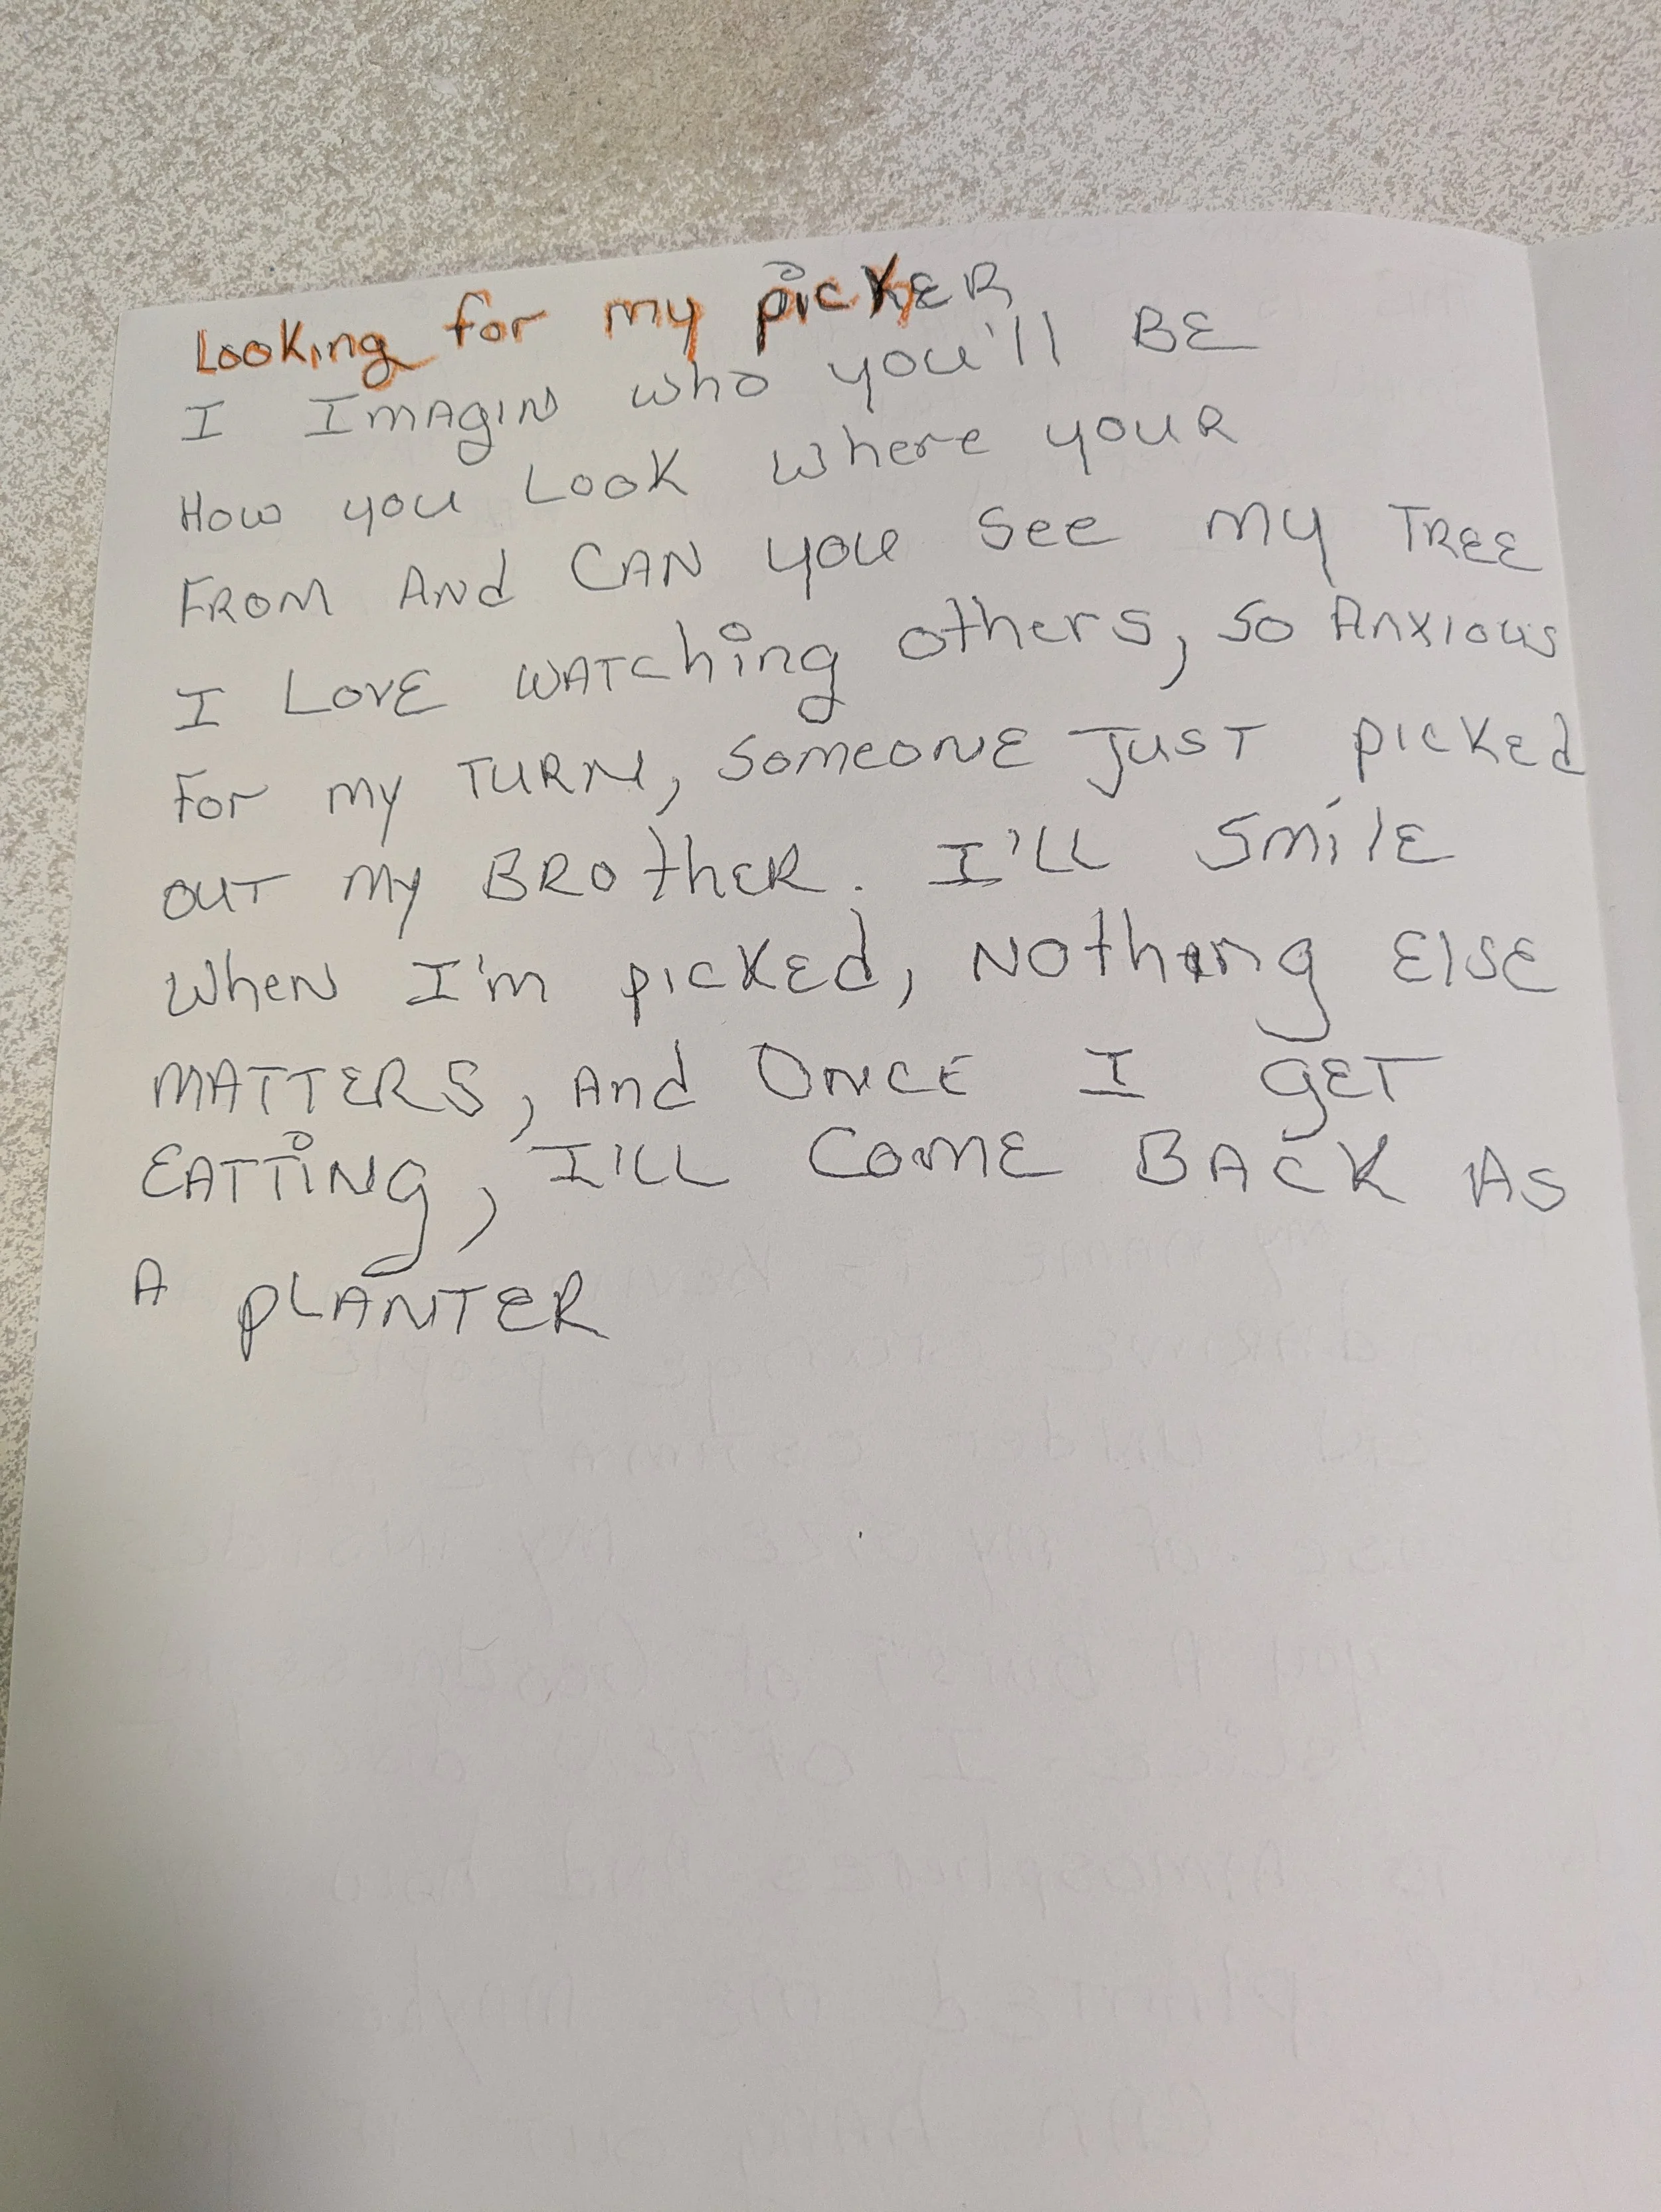 Looking for my picKER
I ImAgiN who you'll BE
How you Look where youR
FROM ANd CAN you see my TREE
I LovE WATChing others, so Anxious
For my TURN, SomeoNE JusT pickEd
ouT my BROthER. I'LL SmilE
WheN I'm pickEd, Nothing ElsE
MATTERS, ANd ONCE I gET
EATTiNg, I'LL ComE BACK AS
A pLANTER